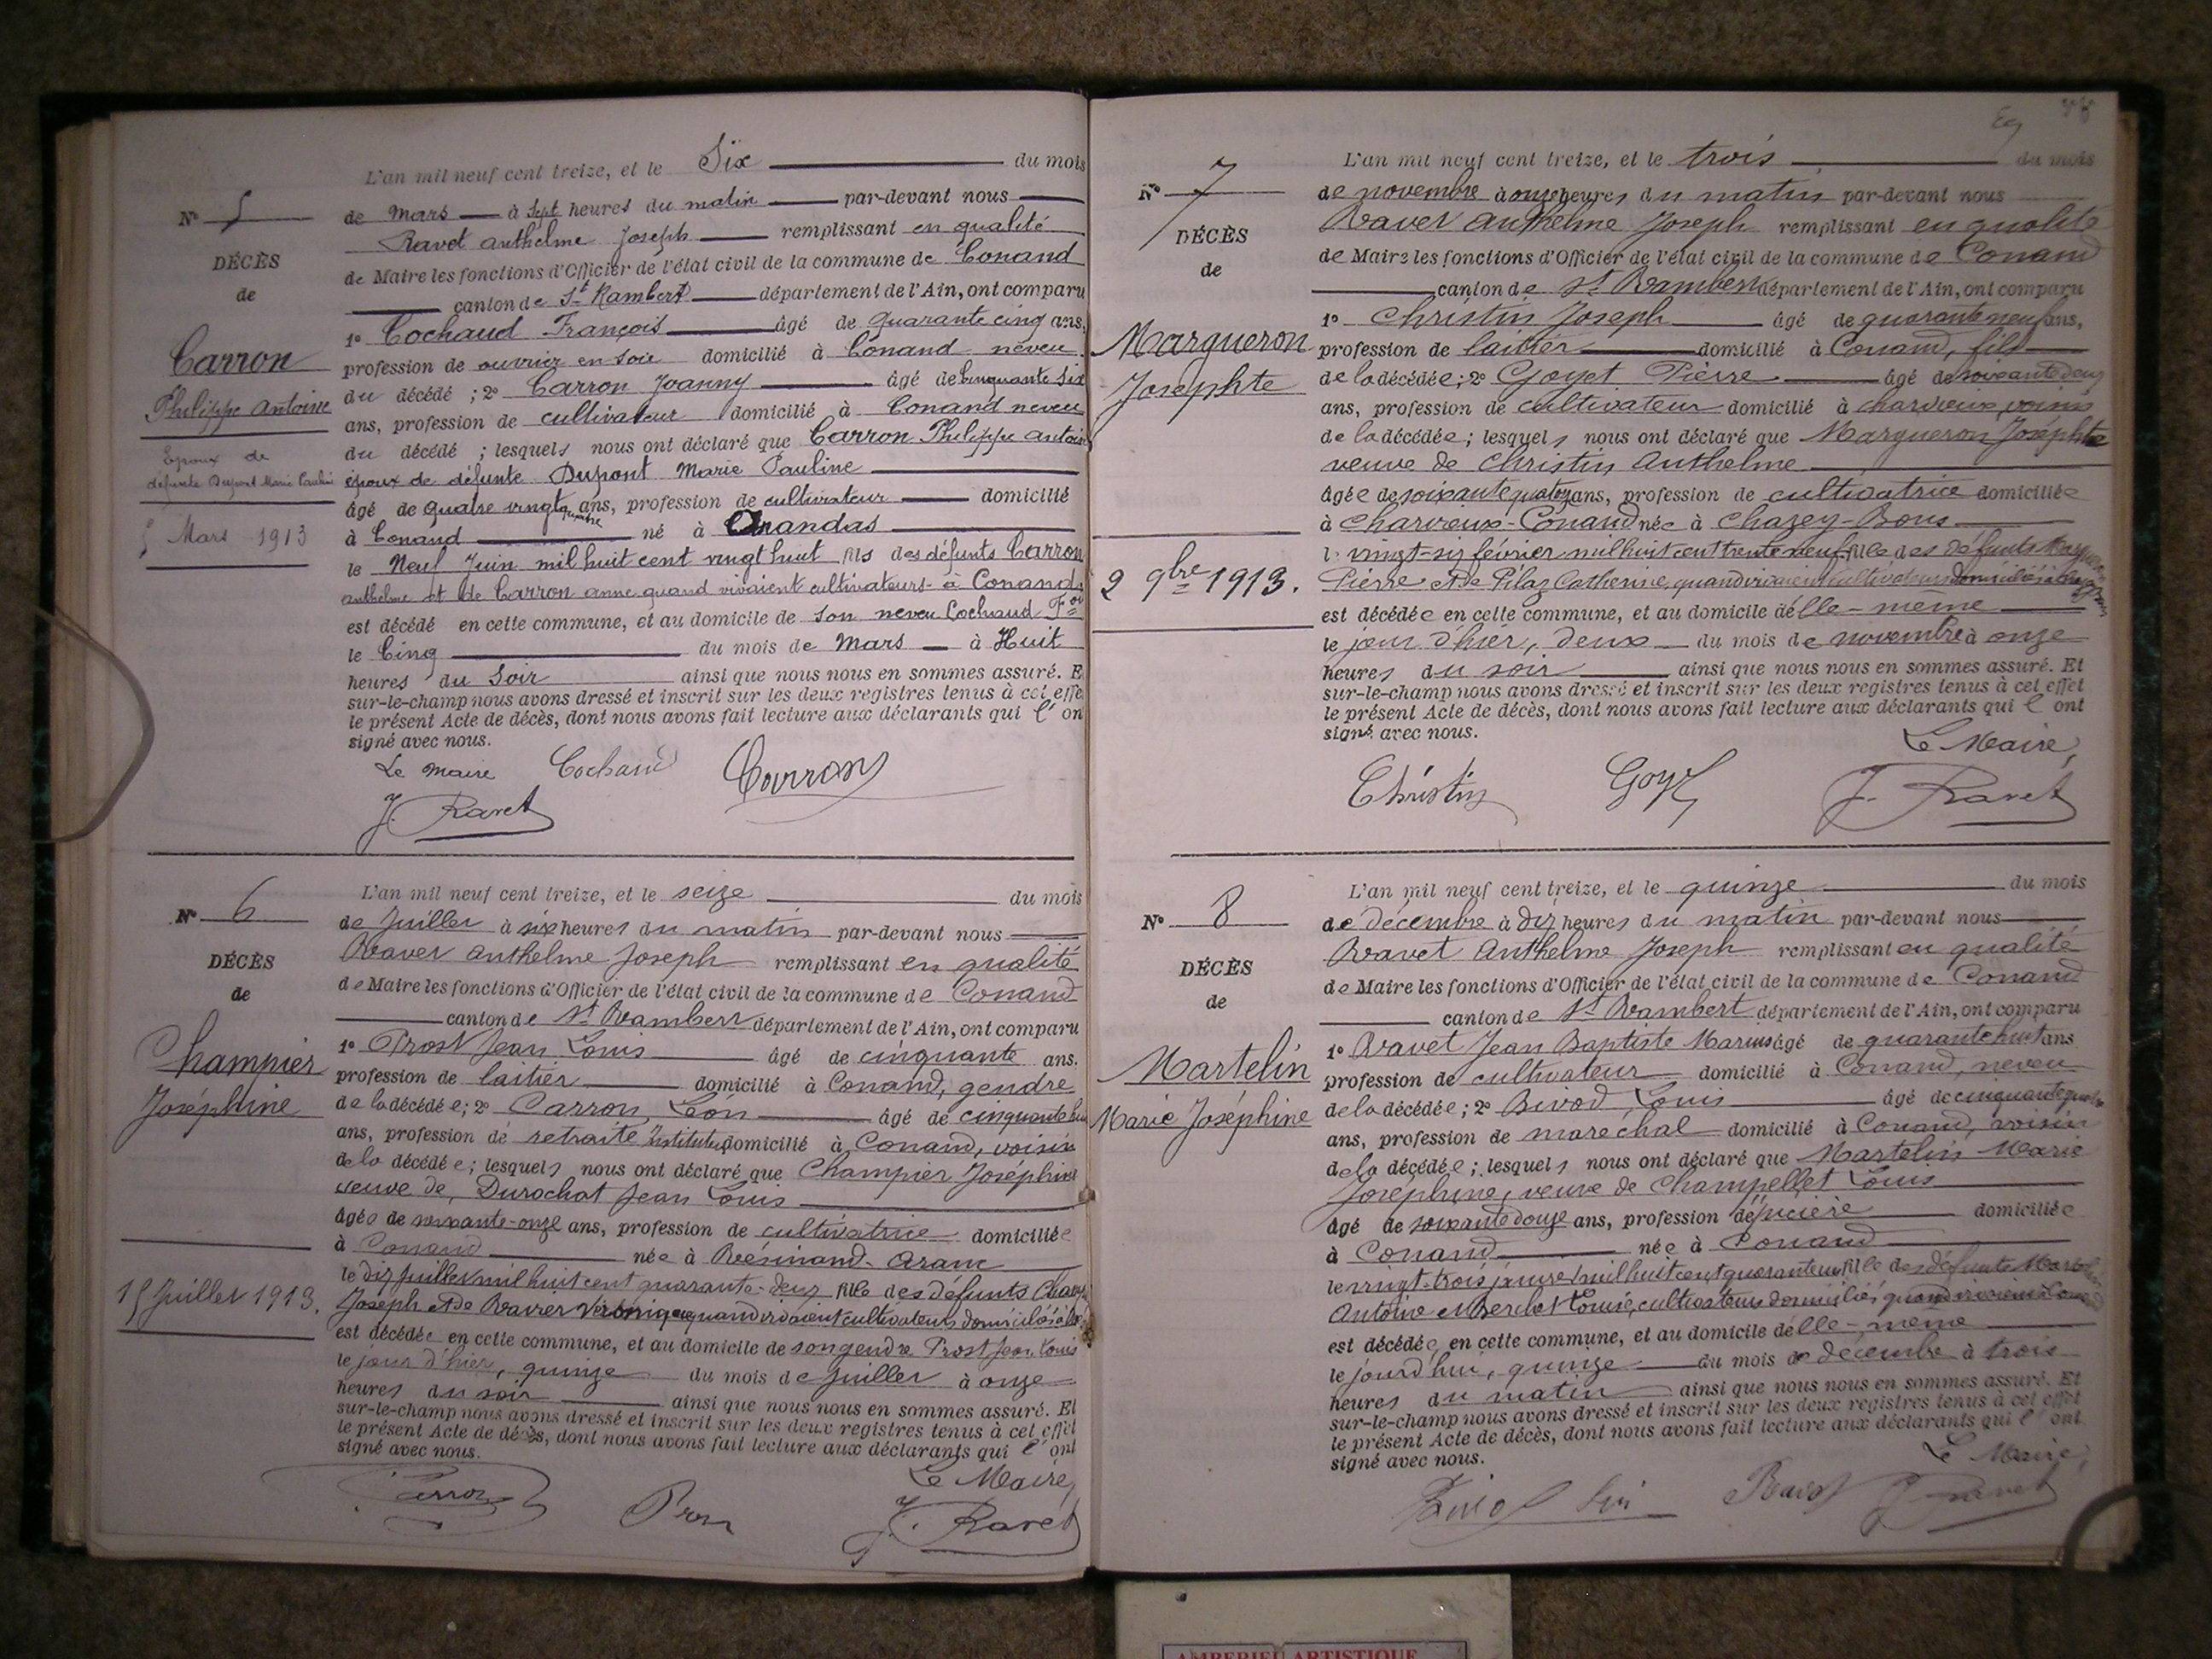 L'an mil neuf cent treize, et le Six du mois
N° 5
de Mars à Sept heures du matin par-devant nous
Ravet anthelme Joseph remplissant en qualité
DÉCÈS
de Maire les fonctions d'Officier de l'état civil de la commune de Conand
de
canton de St Rambert département de l'Ain, ont comparu
1° Cochaud François âgé de quarante cinq ans,
Carron
profession de ouvrier en soie domicilié à Conand neveu
du décédé ; 2° Carron Joanny âgé de Cinquante Six
Philippe Antoine
ans, profession de cultivateur domicilié à Conand neveu
du décédé ; lesquels nous ont déclaré que Carron Philippe antoine
Epoux de
défunte Dupont Marie Pauline
époux de défunte Dupont Marie Pauline
âgé de quatre vingt quatre ans, profession de cultivateur domicilié
5 Mars 1913
à Conand né à Arandas
le Neuf Juin mil huit cent vingt huit fils des défunts Carron
anthelme et de Carron anne quand vivaient cultivateurs à Conand
est décédé en cette commune, et au domicile de son neveu Cochaud Fois
le Cinq du mois de Mars à Huit
heures du Soir ainsi que nous nous en sommes assuré. E
sur-le-champ nous avons dressé et inscrit sur les deux registres tenus à cet effe
le présent Acte de décès, dont nous avons fait lecture aux déclarants qui l'on
signé avec nous.
Le Maire Cochaud Carron
J. Ravet
L'an mil neuf cent treize, et le seize du mois
N° 6
de Juillet à six heures du matin par-devant nous
Ravet anthelme Joseph remplissant en qualité
DÉCÈS
de Maire les fonctions d'Officier de l'état civil de la commune de Conand
de
canton de St Rambert département de l'Ain, ont comparu
1° Prost Jean Louis âgé de cinquante ans.
Champier
profession de laitier domicilié à Conand, gendre
Joséphine
de la décédée; 2° Carron Léon âgé de cinquante
ans, profession de retraité Instituteur domicilié à Conand, voisin
de la décédée; lesquels nous ont déclaré que Champier Joséphine
veuve de Durochat Jean Louis
âgée de soixante-onze ans, profession de cultivatrice domiciliée
à Conand née à Résinand-Aranc
15 Juillet 1913.
le dix Juillet mil huit cent quarante-deux fille des défunts
Joseph et de Ravier Véronique quand vivaient cultivateurs domiciliés à
est décédée en cette commune, et au domicile de son gendre Prost Jean Louis
le jour d'hier, quinze du mois de Juillet à onze
heures du soir ainsi que nous nous en sommes assuré. Et
sur-le-champ nous avons dressé et inscrit sur les deux registres tenus à cet effet
le présent Acte de décès, dont nous avons fait lecture aux déclarants qui l'ont
signé avec nous.
Le Maire,
Carron Prost J. Ravet
L'an mil neuf cent treize, et le trois du mois
N° 7
de novembre à onze heures du matin par-devant nous
Ravet anthelme Joseph remplissant en qualité
DÉCÈS
de Maire les fonctions d'Officier de l'état civil de la commune de Conand
de
canton de St Rambert département de l'Ain, ont comparu
1° Christin Joseph âgé de quarante neuf ans,
Margueron
profession de laitier domicilié à Conand, fils
Josephte
de la décédée; 2° Goyet Pierre âgé de soixante deux
ans, profession de cultivateur domicilié à charvieux, voisin
de la décédée; lesquels nous ont déclaré que Margueron Josephte
veuve de Christin Anthelme
âgée de soixante quatorze ans, profession de cultivatrice domiciliée
à Charvieux-Conand née à Chazey-Bons
2 9bre 1913.
le vingt-six février mil huit cent trente neuf fille des défunts Margueron
Pierre et de Pilaz Catherine, quand vivaient cultivateurs domiciliés à Chazey Bons
est décédée en cette commune, et au domicile d'elle-même
le jour d'hier, deux du mois de novembre à onze
heures du soir ainsi que nous nous en sommes assuré. Et
sur-le-champ nous avons dressé et inscrit sur les deux registres tenus à cet effet
le présent Acte de décès, dont nous avons fait lecture aux déclarants qui l'ont
signé avec nous.
Le Maire,
Christin Goyet J. Ravet
L'an mil neuf cent treize, et le quinze du mois
N° 8
de décembre à dix heures du matin par-devant nous
Ravet Anthelme Joseph remplissant en qualité
DÉCÈS
de Maire les fonctions d'Officier de l'état civil de la commune de Conand
de
canton de St Rambert département de l'Ain, ont comparu
1° Ravet Jean Baptiste Marius âgé de quarante huit ans
Martelin
profession de cultivateur domicilié à Conand, neveu
Marie Joséphine
de la décédée; 2° Buvod Louis âgé de cinquante quatre
ans, profession de maréchal domicilié à Conand, voisin
de la décédée; lesquels nous ont déclaré que Martelin Marie
Joséphine, veuve de Champellet Louis
âgé de soixante douze ans, profession d'épicière domiciliée
à Conand née à Conand
le vingt-trois janvier mil huit cent quarante un fille des défunts Martelin
Antoine et Berchet Louise, cultivateurs domiciliés quand vivaient à Conand
est décédée en cette commune, et au domicile d'elle-même
le jourd'hui, quinze du mois de décembre à trois
heures du matin ainsi que nous nous en sommes assuré. Et
sur-le-champ nous avons dressé et inscrit sur les deux registres tenus à cet effet
le présent Acte de décès, dont nous avons fait lecture aux déclarants qui l'ont
signé avec nous.
Le Maire,
Ravet J. Ravet
AMBERIEU ARTISTIQUE